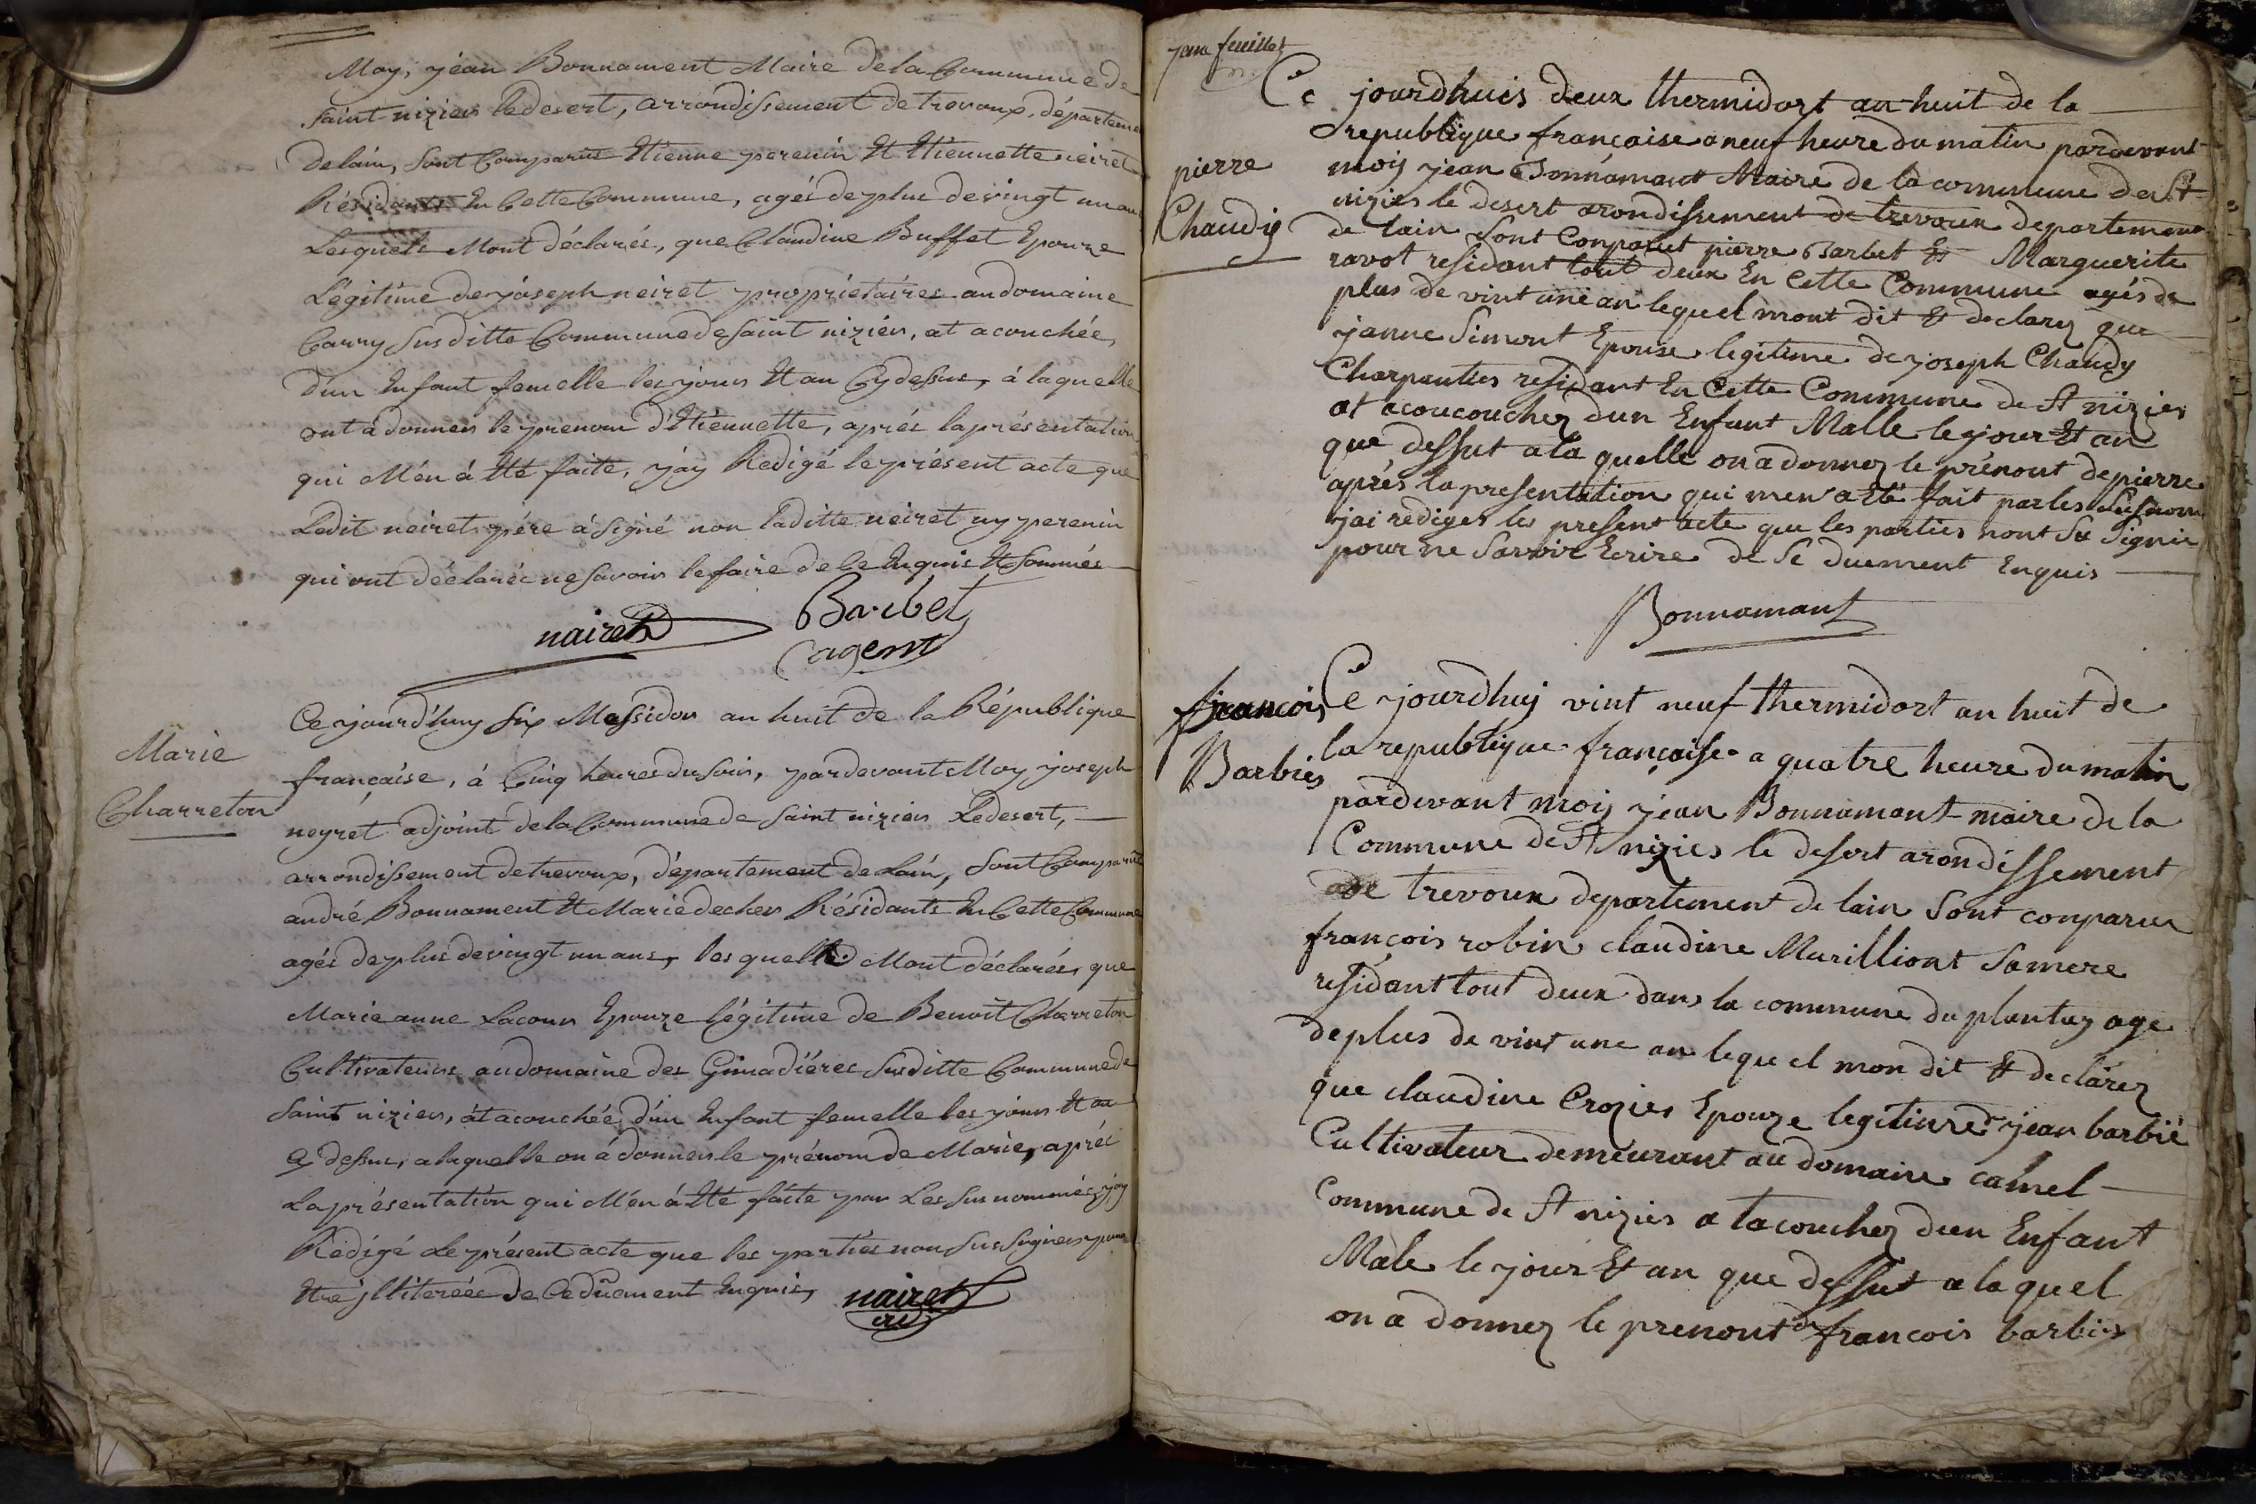 Moy, jéan Bonnament Maire de la Commune de
saint nizier le desert, arrondissement de trevoux, départeme
de lain, sont Comparus Etienne perenin Et Etiennette neiret
Résidants En Cette Commune, agés de plus de vingt un ans
Lesquels Mont déclarés, que Claudine Buffet Epouze
Légitime de joseph neiret propriétaires au domaine
Carry Susditte Commune de saint nizier, at acouchée,
d'un Enfant femelle les jour Et an Cy dessus, à laquelle
ont a donner le prénom d'Etiennette, aprés la présentation
qui M'en à Eté faite, j'ay Redigé le présent acte que
Ledit neiret pére à signé non laditte neiret ny perenin
qui ont déclarée ne savoir le faire de ce Enquis Et sommés
nairet Barbet
agent
Marie
Charreton
Ce jourd'huy six Messidor an huit de la République
française, à Cinq heures du soir, pardevant Moy joseph
neyret adjoint de la Commune de saint nizier Le desert,
arrondissement de trevoux, département de Lain, sont Comparus
andré Bonnament Et Marie decher Résidants En Cette Commune
agés de plus de vingt un ans, lesquelles Mont déclarés, que
Marie anne Lacour Epouze légitime de Benoit Charreton
Cultivateurs au domaine des Gimadiéres Susditte Commune de
saint nizier, at acouchée d'un Enfant femelle les jour Et an
Cy dessus, a laquelle on à donner le prénom de Marie, aprés
La présentation qui M'en à Eté faite par Les sus nommés, j'ay
Rédigé Le présent acte que les parties non sus signer pour
Etre jlliterées de Ce düement Enquis, nairet
adj
feuillet
pierre
Chaudy
Ce jourdhuis deux thermidort an huit de la
republique française a neuf heure du matin pardevant
moij jean Bonnamant Maire de la commune de St
nizier le desert arondissement de trevoux departement
de lain sont Conparut pierre Barbet Et Marguerite
ravot residant tout deux En Cette Commune agés de
plus de vint une an lequel mont dit Et declarez que
janne Simont Epouse legitime de joseph Chaudy
Charpentier residant En Cette Commune de St nizier
at acoucoucher dun Enfant Malle le jour Et an
que dessut a la quelle on a donnez le prénont de pierre
aprés la presentation qui men a été fait par les susnom
jai rediger le present acte que les parties nont Su Signir
pour ne Savoir Ecrire de Se duement Enquis
Bonnamant
francois
Barbier
Ce jourdhuij vint neuf thermidort an huit de
la republique française a quatre heure du matin
pardevant moij jean Bonnamant maire de la
Commune de St nizier le desert arondissement
de trevoux departement de lain Sont conparus
françois robin claudine Murilliont Sa mere
residant tout deux dans la commune du plantay age
de plus de vint une an lequel mon dit Et declárez
que claudine Crozier Epouze legitime de jean barbié
Cultivateur demeurant au domaine camel
Commune de St nizier a tacouchez dun Enfant
Male le jour Et an que dessut a laquel
on a donnez le prenont de francois barbier